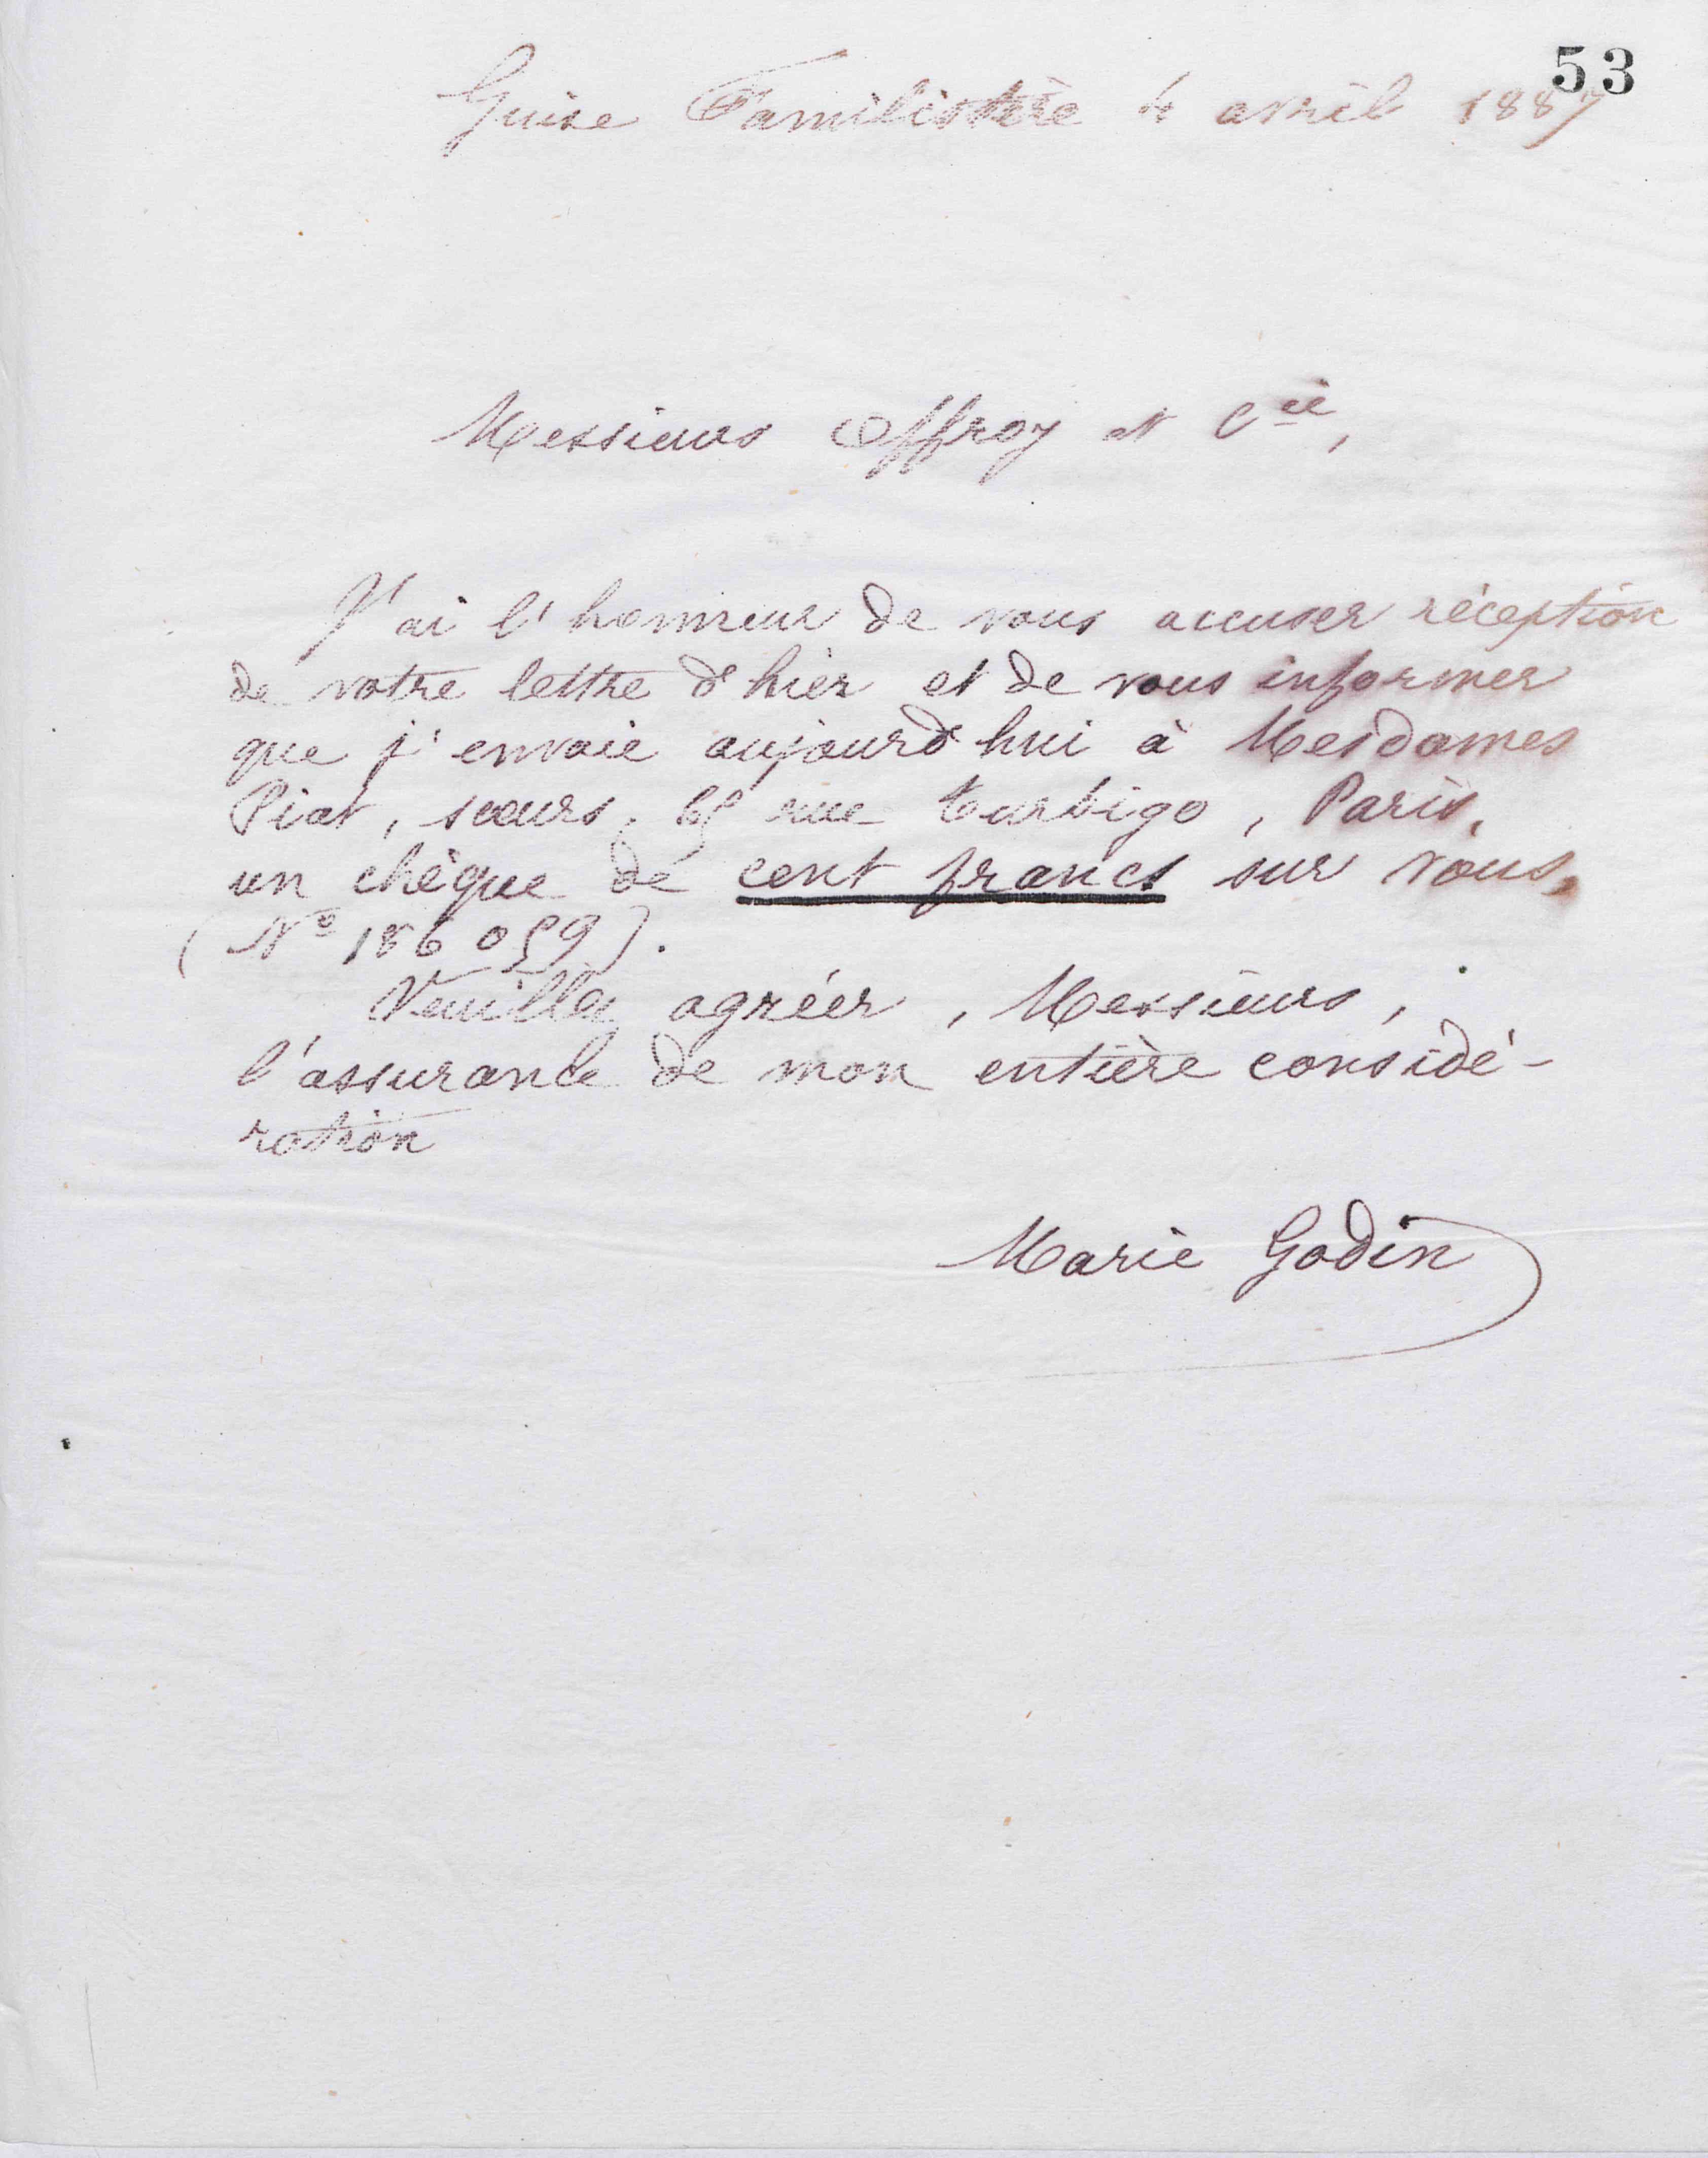 53
Guise Familistère 4 avril 1887
Messieurs Offroy et Cie,
J'ai l'honneur de vous accuser réception
de votre lettre d'hier et de vous informer
que j'envoie aujourd'hui à Mesdames
Piat, sœurs, rue Turbigo, Paris,
un chèque de cent francs sur vous,
(No 186059).
Veuillez agréer, Messieurs,
l'assurance de mon entière considé-
ration
Marie Godin